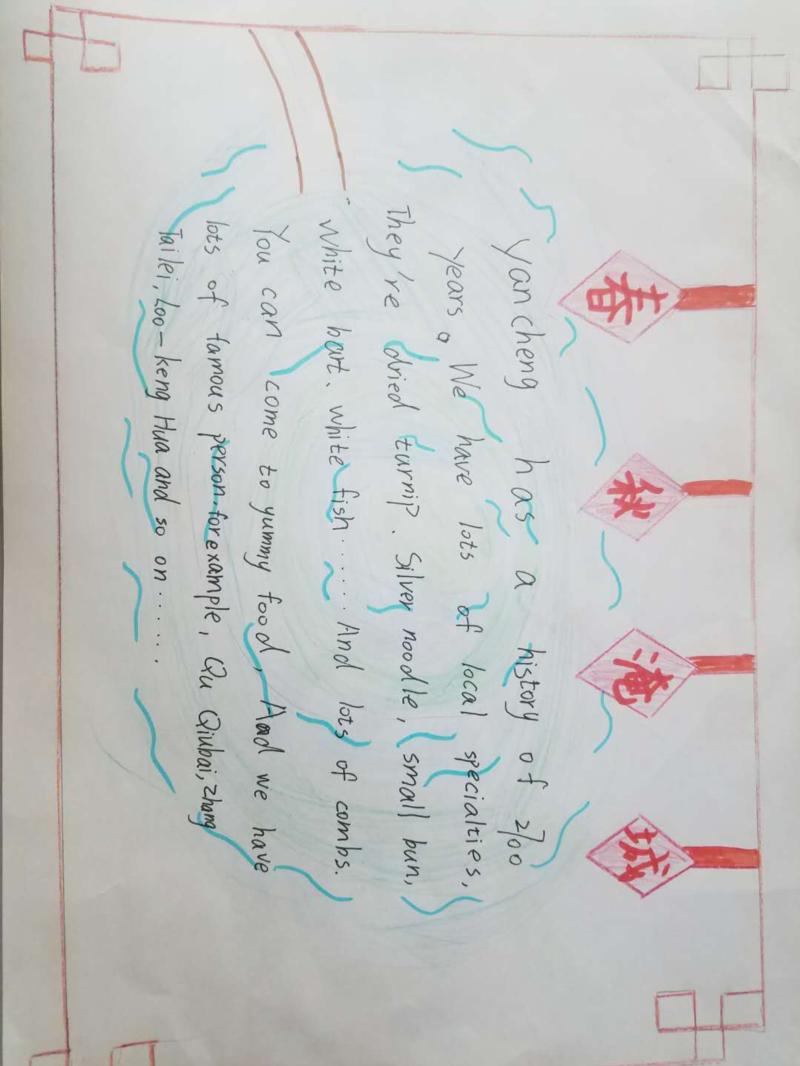 春秋淹城
Yancheng has a history of 2700
years。We have lots of local specialties,
They're dried turnip、Silver noodle, small bun,
white bait、white fish······And lots of combs.
You can come to yummy food, And we have
lots of famous person,for example, Qu Qiubai, Zhang
Tailei, Loo-keng Hua and so on······.